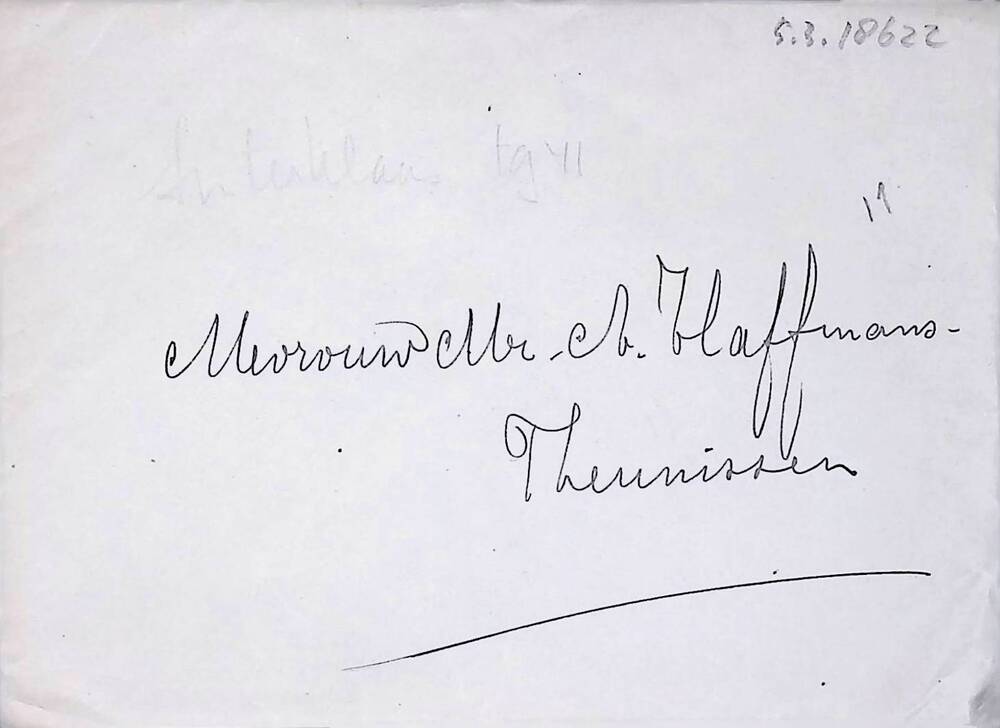 5.3.18622
Sinterklaas tg 41
Mevrouw Mr. A. Haffmans-
Theunissen